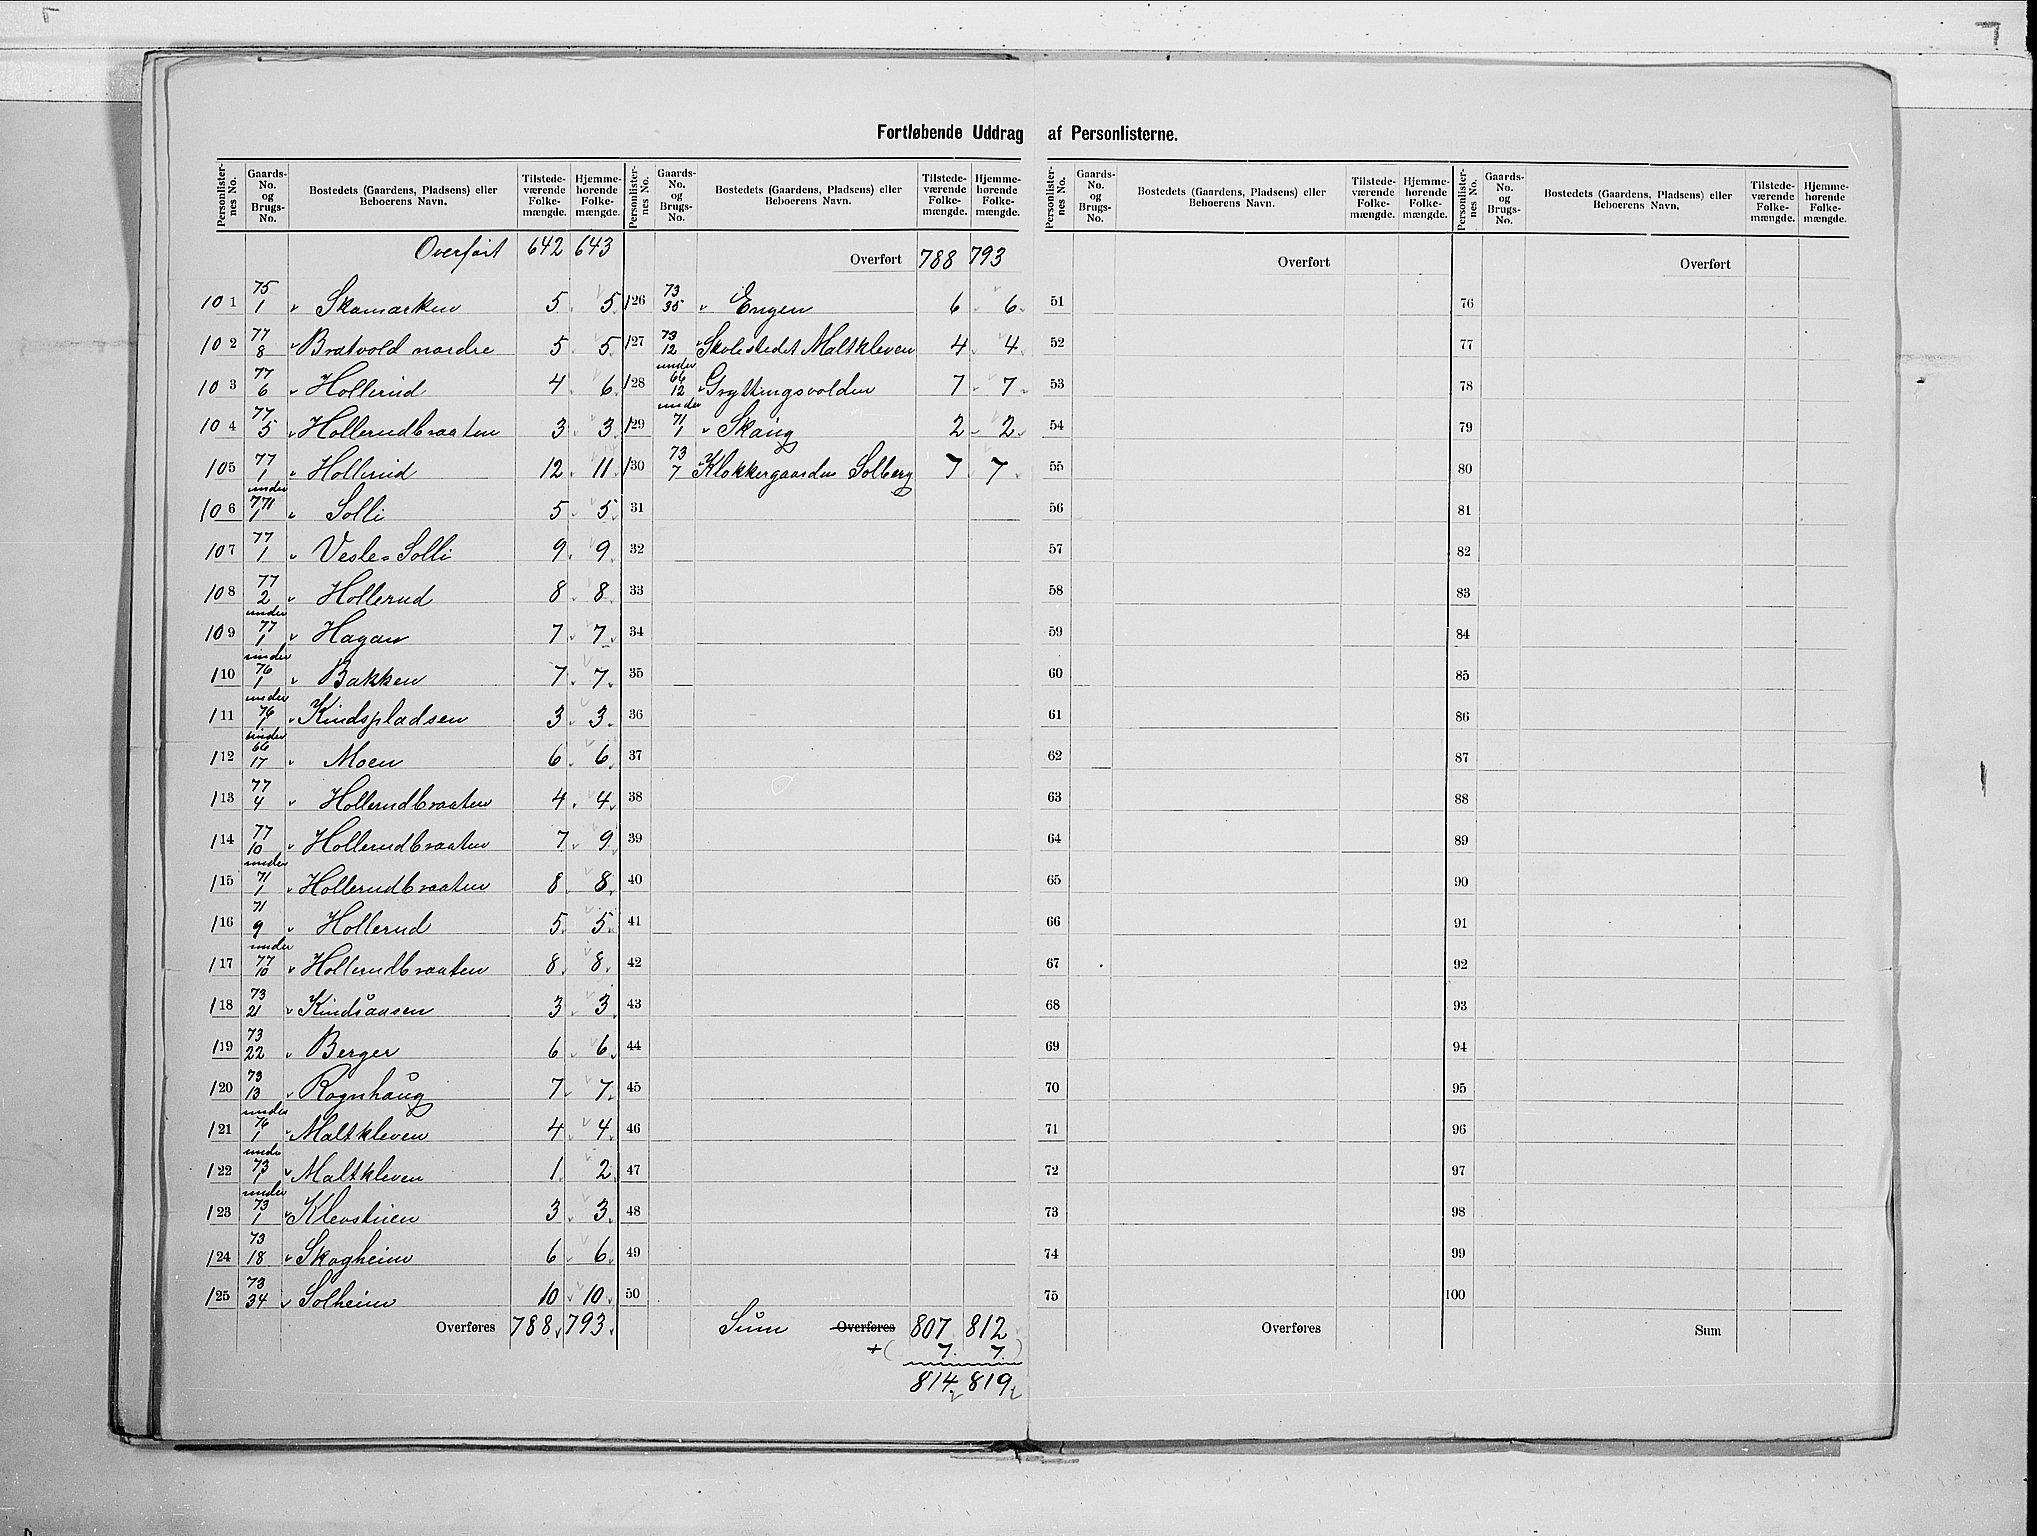 Fortløbende Uddrag af Personlisterne.
Personlister-nes No. Gaards-No. og Brugs-No. Bostedets (Gaardens, Pladsens) eller Beboerens Navn. Tilstede-værende Folke-mængde. Hjemme-hørende Folke-mængde.
Overført 642 643
101 75/1 Skamarken 5 5
102 77/8 Bratvold nordre 5 5
103 77/6 Hollerud 4 6
104 77/5 Hollerudbraaten 3 3
105 77/1 Hollerud 12 11
106 under 71/1 Solli 5 5
107 77/1 Vesle-Solli 9 9
108 77/2 Hollerud 8 8
109 under 77/1 Hagan 7 7
110 under 76/1 Bakken 7 7
111 under 76/1 Kindspladsen 3 3
112 under 66/17 Moen 6 6
113 77/4 Hollerudbraaten 4 4
114 77/10 Hollerudbraaten 7 9
115 under 71/1 Hollerudbraaten 8 8
116 71/9 Hollerud 5 5
117 under 77/10 Hollerudbraaten 8 8
118 73/21 Kindsaasen 3 3
119 73/22 Berger 6 6
120 73/13 Rognhaug 7 7
121 under 76/1 Maltkleven 4 4
122 under 73/1 Maltkleven 1 2
123 under 73/1 Klevstuen 3 3
124 73/18 Skogheim 6 6
125 73/34 Solheim 10 10
Overføres 788 793
Personlister-nes No. Gaards-No. og Brugs-No. Bostedets (Gaardens, Pladsens) eller Beboerens Navn. Tilstede-værende Folke-mængde. Hjemme-hørende Folke-mængde.
Overført 788 793
126 73/35 Engen 6 6
127 73/12 Skolestedet Maltkleven 4 4
128 under 66/12 Gryttingsvolden 7 7
129 under 71/1 Skaug 2 2
130 73/7 Klokkergaarden Solberg 7 7
31
32
33
34
35
36
37
38
39
40
41
42
43
44
45
46
47
48
49
50
Sum Overføres 807 812
+ ( 7 7 )
814 819
Personlister-nes No. Gaards-No. og Brugs-No. Bostedets (Gaardens, Pladsens) eller Beboerens Navn. Tilstede-værende Folke-mængde. Hjemme-hørende Folke-mængde.
Overført
51
52
53
54
55
56
57
58
59
60
61
62
63
64
65
66
67
68
69
70
71
72
73
74
75
Overføres
Personlister-nes No. Gaards-No. og Brugs-No. Bostedets (Gaardens, Pladsens) eller Beboerens Navn. Tilstede-værende Folke-mængde. Hjemme-hørende Folke-mængde.
Overført
76
77
78
79
80
81
82
83
84
85
86
87
88
89
90
91
92
93
94
95
96
97
98
99
100
Sum